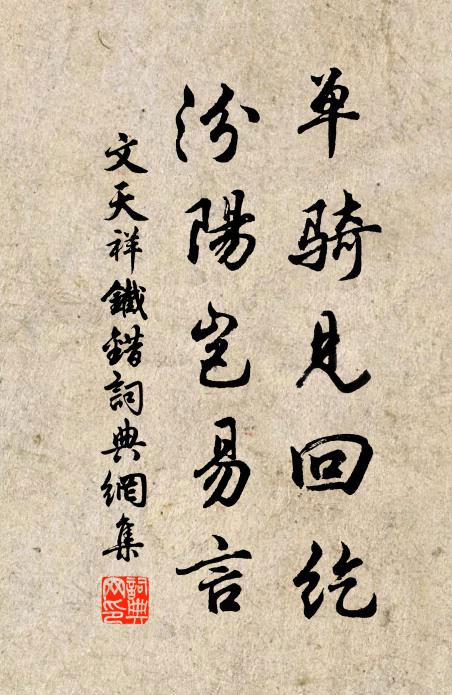 单骑見回紇
汾陽岂易言
文天祥鐵錯詞典網集
詞典網印